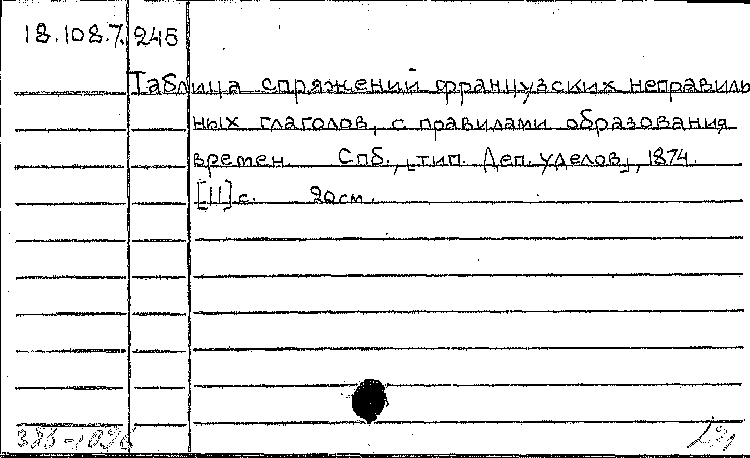 18.108.7.245
Таблица спряжений французских неправиль
ных глаголов, с правилами образования
времен. Спб., [тип. Деп. уделов], 1874.
[11] с. 20 см.